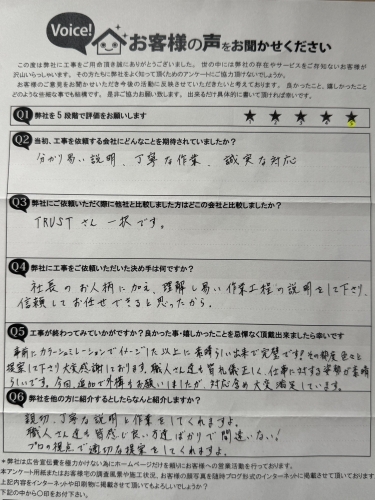 Voice!
お客様の声をお聞かせください
この度は弊社に工事をご用命頂き誠にありがとうございました。世の中には弊社の存在やサービスをご存知ないお客様が
沢山いらっしゃいます。その方たちに弊社をよく知って頂くためのアンケートにご協力頂けないでしょうか。
お客様のご意見をお聞かせいただき今後の活動に反映させていただきたいと考えております。良かったこと、嬉しかったこと
どのような些細な事でも結構です。是非ご協力お願い致します。出来るだけ具体的に書いて頂ければ幸いです。
Q1 弊社を5段階で評価をお願いします ★ ★ ★ ★ ★
Q2 当初、工事を依頼する会社にどんなことを期待されていましたか?
分かり易い説明、丁寧な作業、誠実な対応
Q3 弊社にご依頼いただく際に他社と比較しました方はどこの会社と比較しましたか?
TRUSTさん一択です。
Q4 弊社に工事をご依頼いただいた決め手は何ですか?
社長のお人柄に加え、理解し易い作業工程の説明をして下さり、
信頼してお任せできると思ったから。
Q5 工事が終わってみていかがですか?良かった事・嬉しかったことを忌憚なく頂戴出来ましたら幸いです
事前にカラーシュミレーションでイメージした以上に素晴らしい出来で完璧です!その都度色々と
提案して下さり大変感謝しております。職人さん達も皆礼儀正しく、仕事に対する姿勢が素晴
らしいです。今回、追加で外構もお願いしましたが、対応含め大変満足しています。
Q6 弊社を他の方に紹介するとしたらなんと紹介しますか?
親切、丁寧な説明と作業をしてくれますよ。
職人さん達も皆感じ良い方達ばかりで間違いない!
プロの視点で適切な提案をしてくれますよ。
*弊社は広告宣伝費を極力かけない為にホームページだけを頼りにお客様への営業活動を行っております。
本アンケート用紙またはお客様宅の調査風景や施工状況、お客様の顔写真を随時ブログ形式のインターネットに掲載させて頂いております
上記内容をインターネットや印刷物に掲載させて頂いてもよろしいでしょうか?
下記の中から〇印をお付け下さい。